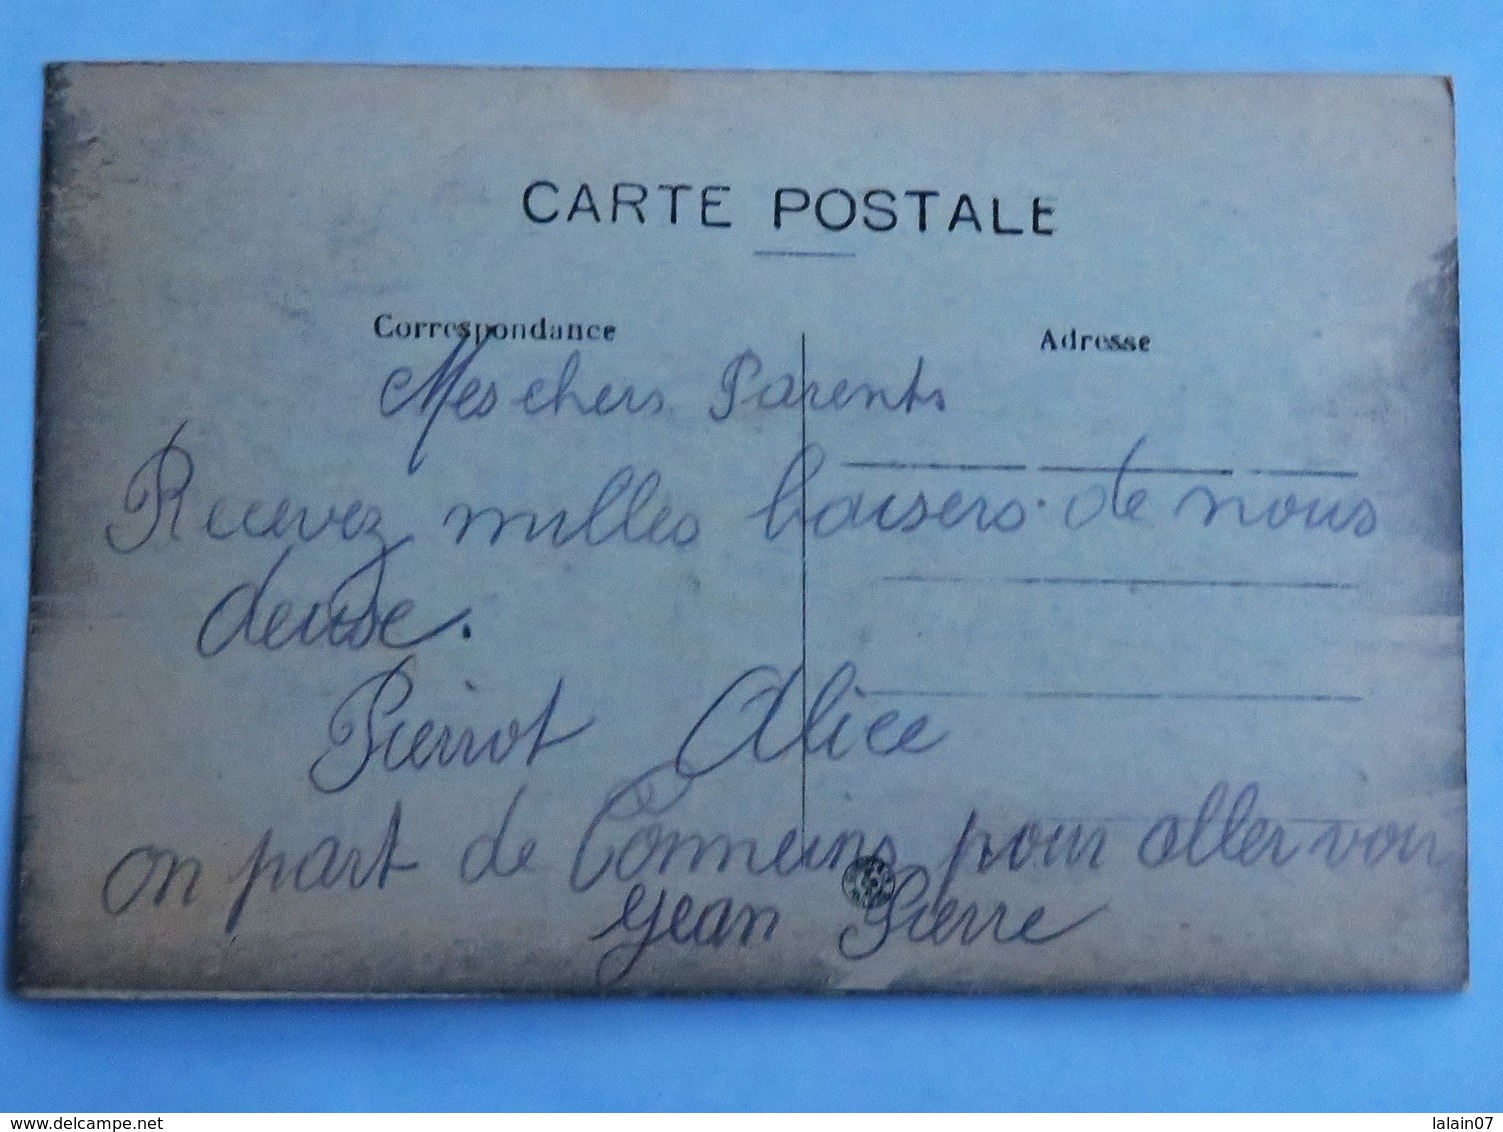 CARTE POSTALE
Correspondance
Adresse
Mes chers Parents
Recevez milles baisers de nous
deuxe.
Pierrot Alice
on part de pour aller voir
Jean Pierre
delcampe.net
lalain07